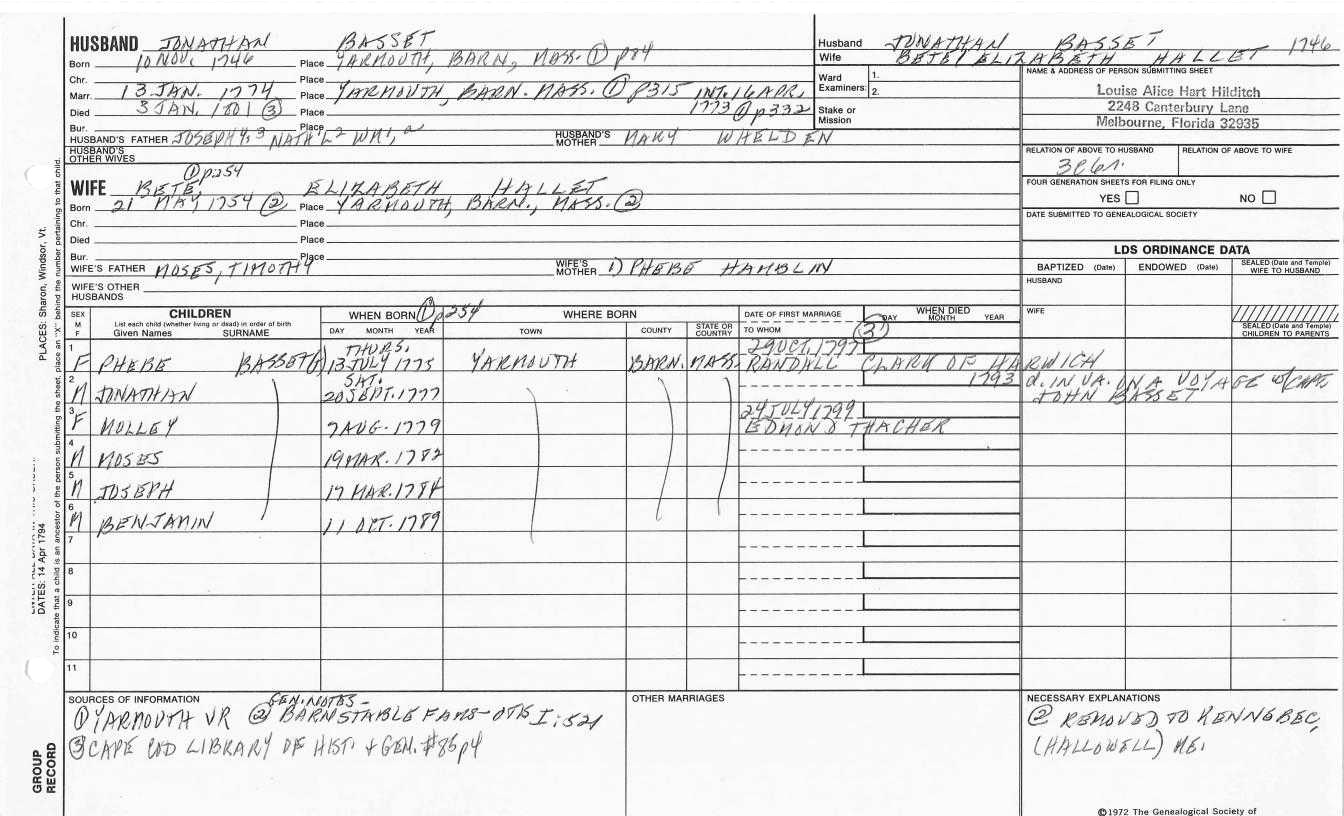 HUSBAND JONATHAN BASSET
Born 10 NOV. 1746 Place YARMOUTH, BARN, MASS. ① p84
Chr. Place
Marr. 13 JAN. 1774 Place YARMOUTH, BARN. MASS. ① p315 INT. 16 APR.
Died 3 JAN. 1801 ③ Place 1773 ① p332
Bur. Place
HUSBAND'S FATHER JOSEPH4, 3 NATH'L2 WM1, a HUSBAND'S MOTHER MARY WHELDEN
HUSBAND'S OTHER WIVES
① p254
WIFE BETE, ELIZABETH HALLET
Born 21 MAY 1754 ② Place YARMOUTH, BARN., MASS. ②
Chr. Place
Died Place
Bur. Place
WIFE'S FATHER MOSES, TIMOTHY WIFE'S MOTHER 1) PHEBE HAMBLIN
WIFE'S OTHER HUSBANDS
Husband JONATHAN BASSET 1746
Wife BETE/ELIZABETH HALLET
Ward Examiners: 1.
2.
Stake or Mission
NAME & ADDRESS OF PERSON SUBMITTING SHEET
Louise Alice Hart Hilditch
2248 Canterbury Lane
Melbourne, Florida 32935
RELATION OF ABOVE TO HUSBAND RELATION OF ABOVE TO WIFE
3c6r.
FOUR GENERATION SHEETS FOR FILING ONLY
YES NO
DATE SUBMITTED TO GENEALOGICAL SOCIETY
LDS ORDINANCE DATA
BAPTIZED (Date) ENDOWED (Date) SEALED (Date and Temple) WIFE TO HUSBAND
HUSBAND
WIFE
SEALED (Date and Temple) CHILDREN TO PARENTS
SEX M F CHILDREN List each child (whether living or dead) in order of birth Given Names SURNAME
WHEN BORN ① p254 DAY MONTH YEAR
WHERE BORN TOWN COUNTY STATE OR COUNTRY
DATE OF FIRST MARRIAGE TO WHOM
WHEN DIED DAY MONTH YEAR ③
THURS. 29 OCT. 1797
1 F PHEBE BASSET 13 JULY 1775 YARMOUTH BARN. MASS. RANDALL CLARK OF HARWICH
2 SAT. 1793 d. IN VA. ON A VOYAGE w/CAPT.
M JONATHAN 20 SEPT. 1777 JOHN BASSET
3 24 JULY 1799
F MOLLEY 7 AUG. 1779 EDMOND THACHER
4 M MOSES 19 MAR. 1782
5 M JOSEPH 17 MAR. 1784
6 M BENJAMIN 11 OCT. 1789
7
8
9
10
11
SOURCES OF INFORMATION
GEN. NOTES-
① YARMOUTH VR ② BARNSTABLE FAMS-OTIS I:521
③ CAPE COD LIBRARY OF HIST. + GEN. #85 p4
OTHER MARRIAGES
NECESSARY EXPLANATIONS
② REMOVED TO KENNEBEC,
(HALLOWELL) ME.
©1972 The Genealogical Society of
PLACES: Sharon, Windsor, Vt.
DATES: 14 Apr 1794
To indicate that a child is an ancestor of the person submitting the sheet, place an "X" behind the number pertaining to that child.
GROUP RECORD